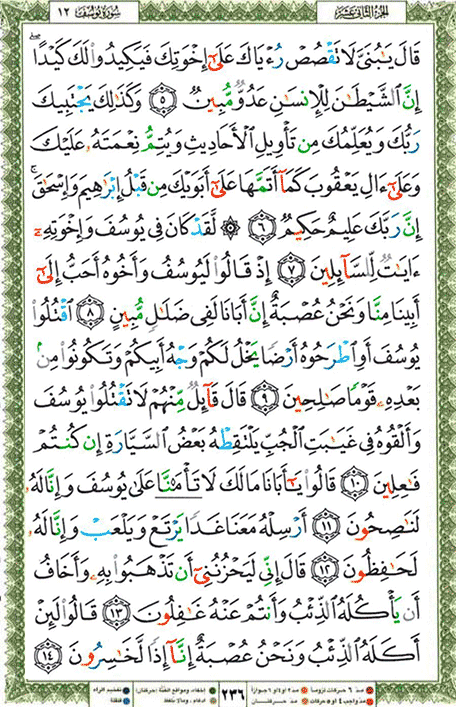 الجزء الثاني عشر
سورة يوسف ١٢
قَالَ يَٰبُنَىَّ لَا تَقْصُصْ رُءْيَاكَ عَلَىٰٓ إِخْوَتِكَ فَيَكِيدُوا۟ لَكَ كَيْدًا ۖ
إِنَّ ٱلشَّيْطَٰنَ لِلْإِنسَٰنِ عَدُوٌّ مُّبِينٌ ٥ وَكَذَٰلِكَ يَجْتَبِيكَ
رَبُّكَ وَيُعَلِّمُكَ مِن تَأْوِيلِ ٱلْأَحَادِيثِ وَيُتِمُّ نِعْمَتَهُۥ عَلَيْكَ
وَعَلَىٰٓ ءَالِ يَعْقُوبَ كَمَآ أَتَمَّهَا عَلَىٰٓ أَبَوَيْكَ مِن قَبْلُ إِبْرَٰهِيمَ وَإِسْحَٰقَ ۚ
إِنَّ رَبَّكَ عَلِيمٌ حَكِيمٌ ٦ ۞ لَّقَدْ كَانَ فِى يُوسُفَ وَإِخْوَتِهِۦٓ
ءَايَٰتٌ لِّلسَّآئِلِينَ ٧ إِذْ قَالُوا۟ لَيُوسُفُ وَأَخُوهُ أَحَبُّ إِلَىٰٓ
أَبِينَا مِنَّا وَنَحْنُ عُصْبَةٌ إِنَّ أَبَانَا لَفِى ضَلَٰلٍ مُّبِينٍ ٨ ٱقْتُلُوا۟
يُوسُفَ أَوِ ٱطْرَحُوهُ أَرْضًا يَخْلُ لَكُمْ وَجْهُ أَبِيكُمْ وَتَكُونُوا۟ مِنۢ
بَعْدِهِۦ قَوْمًا صَٰلِحِينَ ٩ قَالَ قَآئِلٌ مِّنْهُمْ لَا تَقْتُلُوا۟ يُوسُفَ
وَأَلْقُوهُ فِى غَيَٰبَتِ ٱلْجُبِّ يَلْتَقِطْهُ بَعْضُ ٱلسَّيَّارَةِ إِن كُنتُمْ
فَٰعِلِينَ ١٠ قَالُوا۟ يَٰٓأَبَانَا مَا لَكَ لَا تَأْمَ۫نَّا عَلَىٰ يُوسُفَ وَإِنَّا لَهُۥ
لَنَٰصِحُونَ ١١ أَرْسِلْهُ مَعَنَا غَدًا يَرْتَعْ وَيَلْعَبْ وَإِنَّا لَهُۥ
لَحَٰفِظُونَ ١٢ قَالَ إِنِّى لَيَحْزُنُنِىٓ أَن تَذْهَبُوا۟ بِهِۦ وَأَخَافُ
أَن يَأْكُلَهُ ٱلذِّئْبُ وَأَنتُمْ عَنْهُ غَٰفِلُونَ ١٣ قَالُوا۟ لَئِنْ
أَكَلَهُ ٱلذِّئْبُ وَنَحْنُ عُصْبَةٌ إِنَّآ إِذًا لَّخَٰسِرُونَ ١٤
مدّ ٦ حركات لزوماً مدّ ٢ أو ٤ أو ٦ جوازاً
مدّ واجب ٤ أو ٥ حركات مدّ حركتان
٢٣٦
إخفاء، ومواقع الغنّة (حركتان) تفخيم الراء
ادغام، وما لا يُلفظ قلقلة